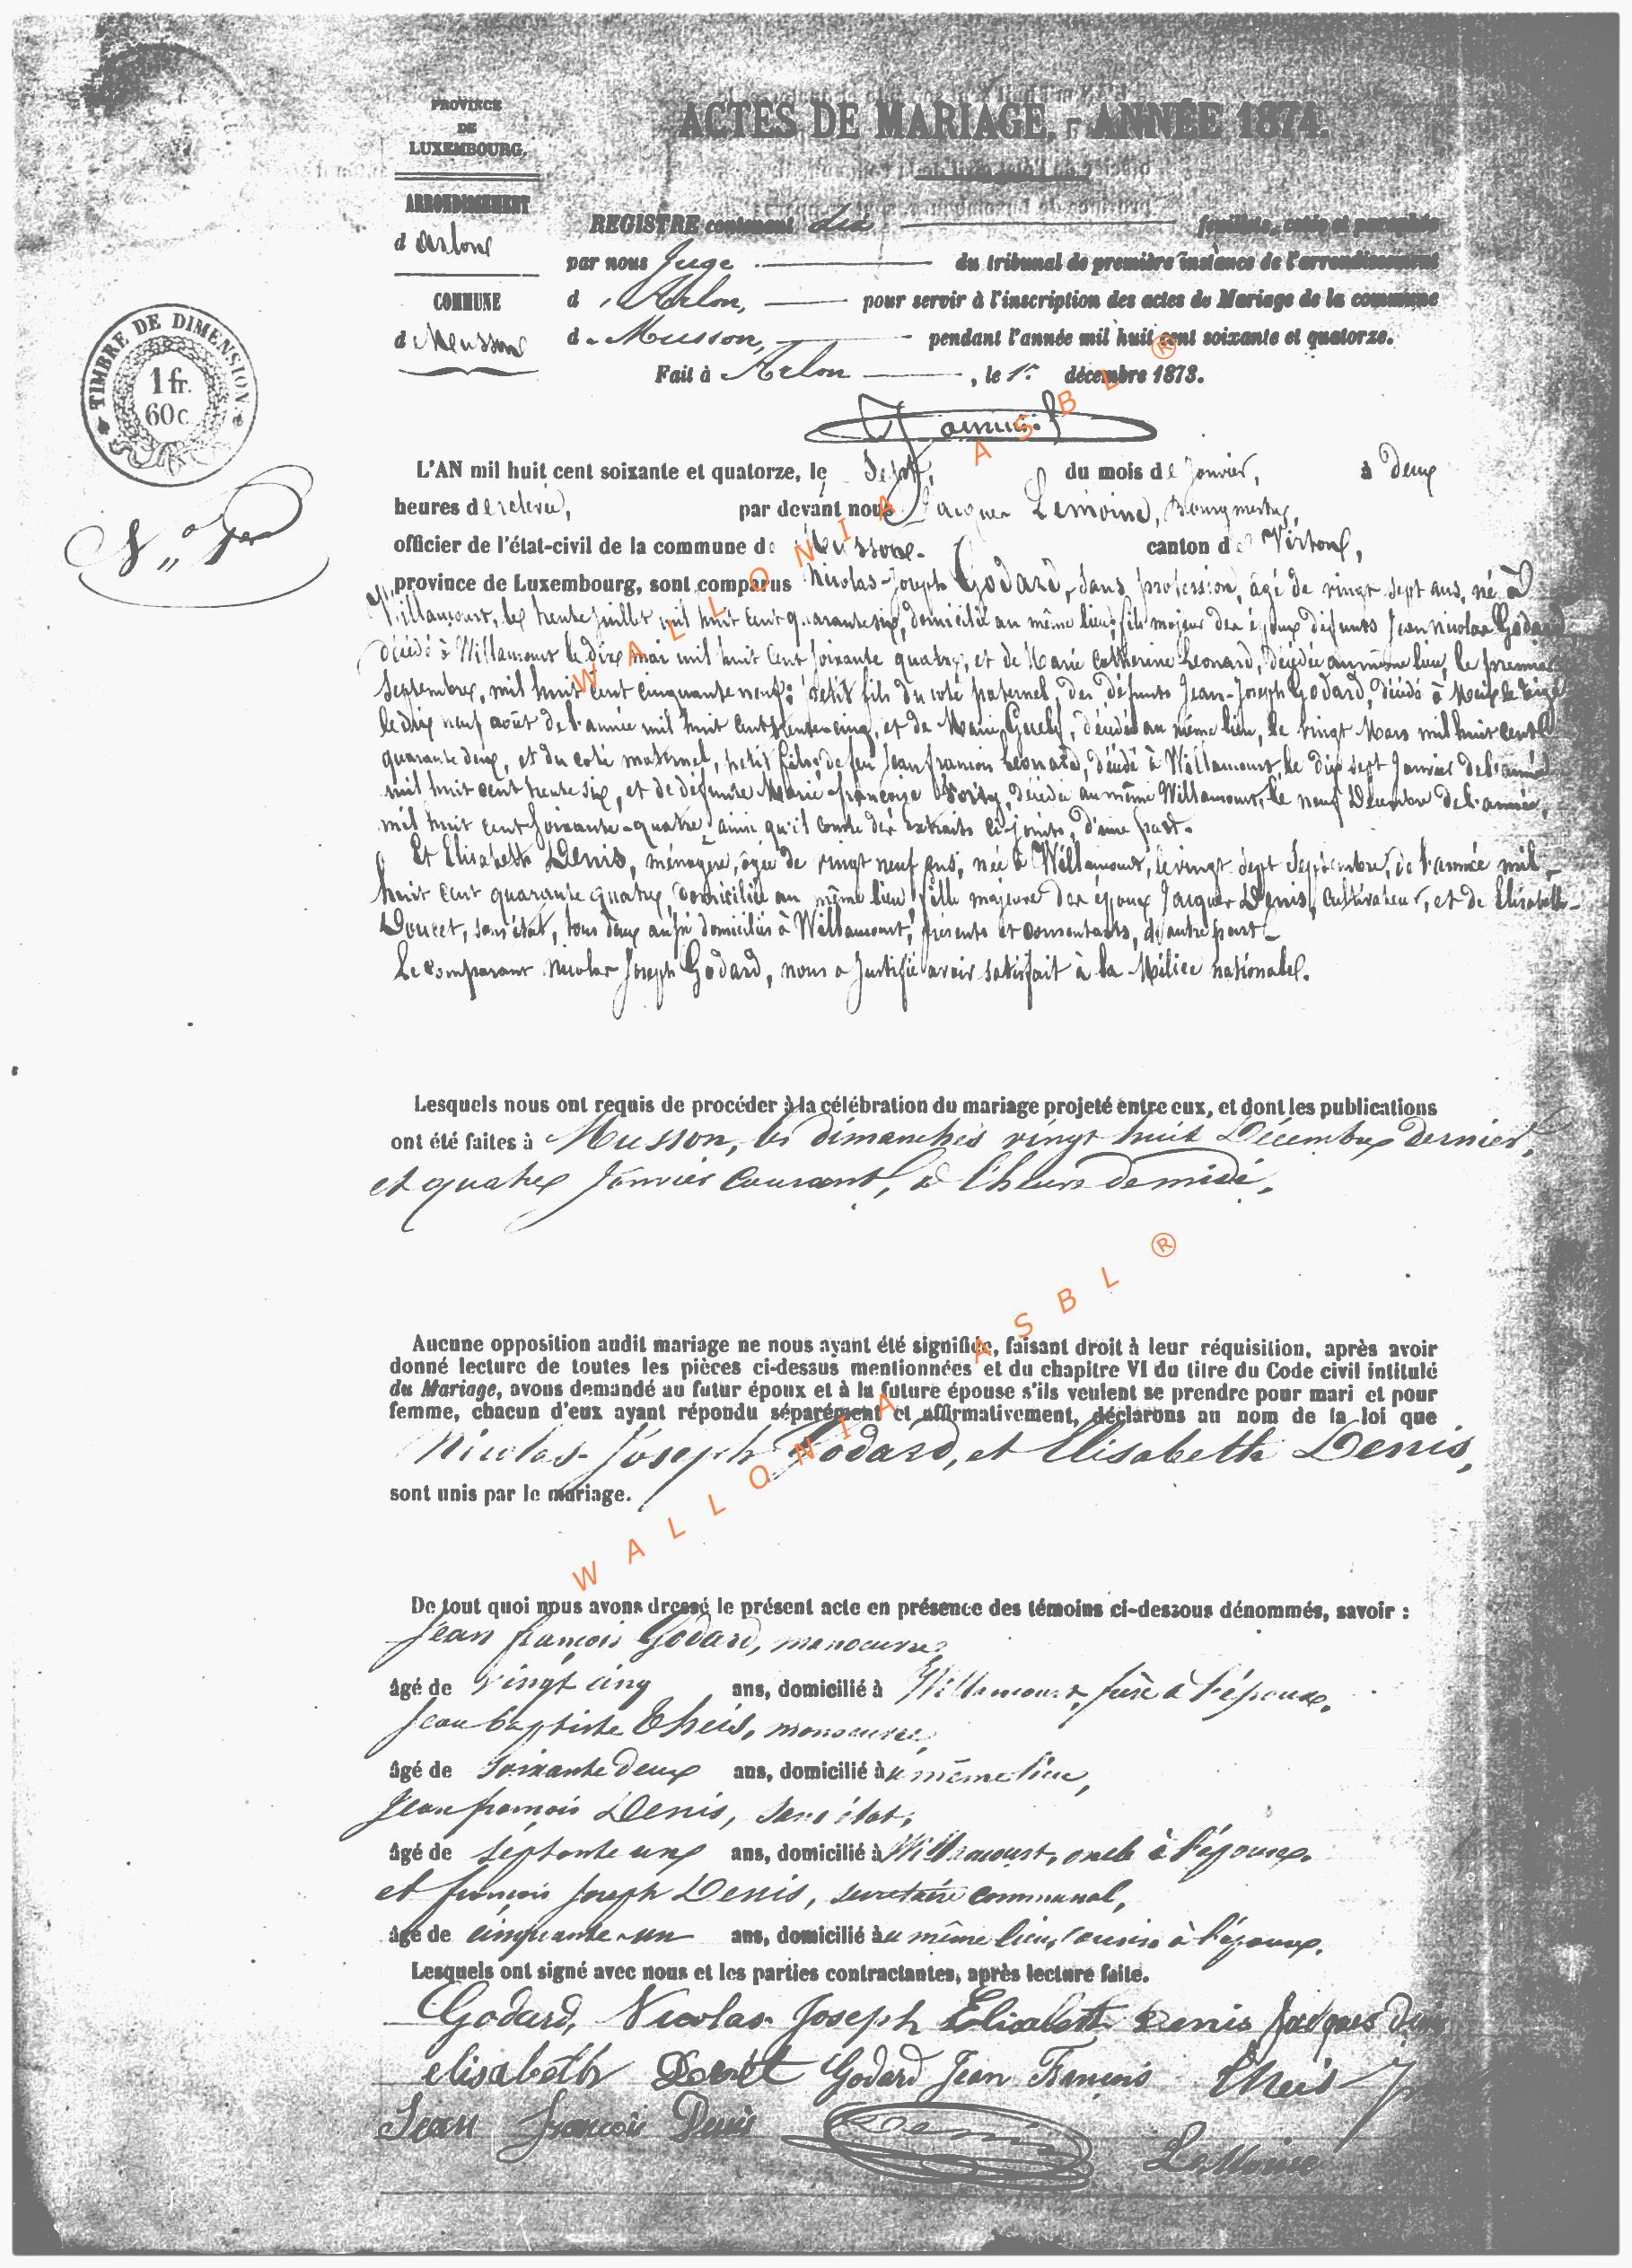 PROVINCE
DE
LUXEMBOURG.
ARRONDISSEMENT
d'Arlon
COMMUNE
de Musson
ACTES DE MARIAGE. - ANNÉE 1874.
REGISTRE contenant dix feuillets, cotés et paraphés
par nous Juge du tribunal de première instance de l'arrondissement
d'Arlon, pour servir à l'inscription des actes de Mariage de la commune
de Musson, pendant l'année mil huit cent soixante et quatorze.
Fait à Arlon, le 1er décembre 1873.
TIMBRE DE DIMENSION.
1 fr.
60 c.
N° 1er
L'AN mil huit cent soixante et quatorze, le Sept, du mois de Janvier, à deux
heures de relevée, par devant nous Jacques Lemoine, Bourgmestre,
officier de l'état-civil de la commune de Musson. canton de Virton,
province de Luxembourg, sont comparus Nicolas-Joseph Godard, sans profession, âgé de vingt sept ans, né à
Willancourt, le trente juillet mil huit cent quarante six, domicilié au même lieu, fils majeur des époux défunts Jean Nicolas Godard,
décédé à Willancourt le dix mai mil huit cent soixante quatre, et de Marie Catherine Leonard, décédée au même lieu, le premier
Septembre, mil huit cent cinquante neuf; petit fils du coté paternel, des défunts Jean-Joseph Godard, décédé à Meix-le-Tige
le dix neuf août de l'année mil huit cent trente cinq, et de Marie, décédée au même lieu, le vingt Mars mil huit cent
quarante deux, et du coté maternel, petit fils de feu Jean françois Leonard, décédé à Willancourt, le dix sept Janvier de l'année
mil huit cent trente six, et de défunte Marie-françoise, décédée au même Willancourt, le neuf Décembre de l'année,
mil huit cent soixante-quatre, ainsi qu'il conste des extraits ci-joints, d'une part.
Et Elisabeth Denis, ménagère, âgée de vingt neuf ans, née à Willancourt, le vingt sept Septembre, de l'année mil-
huit cent quarante quatre, domiciliée au même lieu, fille majeure des époux Jacques Denis, Cultivateur, et de Elisabeth-
Doucet, sans état, tous deux aussi domiciliés à Willancourt, présents et consentants, d'autre part.
Le comparant Nicolas Joseph Godard, nous a justifié avoir satisfait à la Milice nationale.
Lesquels nous ont requis de procéder à la célébration du mariage projeté entre eux, et dont les publications
ont été faites à Musson, les dimanches vingt huit Décembre dernier,
et quatre Janvier Courant, à l'heure de midi.
Aucune opposition audit mariage ne nous ayant été signifiée, faisant droit à leur réquisition, après avoir
donné lecture de toutes les pièces ci-dessus mentionnées et du chapitre VI du titre du Code civil intitulé
du Mariage, avons demandé au futur époux et à la future épouse s'ils veulent se prendre pour mari et pour
femme, chacun d'eux ayant répondu séparément et affirmativement, déclarons au nom de la loi que
Nicolas-Joseph Godard, et Elisabeth Denis,
sont unis par le mariage.
De tout quoi nous avons dressé le présent acte en présence des témoins ci-dessous dénommés, savoir :
Jean françois Godard, manoeuvre,
âgé de vingt cinq ans, domicilié à Willancourt, frère à l'époux,
Jean baptiste Theis, manoeuvre,
âgé de soixante deux ans, domicilié au même lieu,
Jean françois Denis, sans état,
âgé de septante un ans, domicilié à Willancourt, oncle à l'épouse,
et françois Joseph Denis, secretaire communal,
âgé de cinquante-un ans, domicilié au même lieu, cousin à l'épouse.
Lesquels ont signé avec nous et les parties contractantes, après lecture faite.
Godard, Nicolas Joseph Elisabeth Denis Jacques Denis
elisabeth Doucet Godard Jean François Theis
Jean françois Denis Denis LeMoine
WALLONIA ASBL ®
WALLONIA ASBL ®